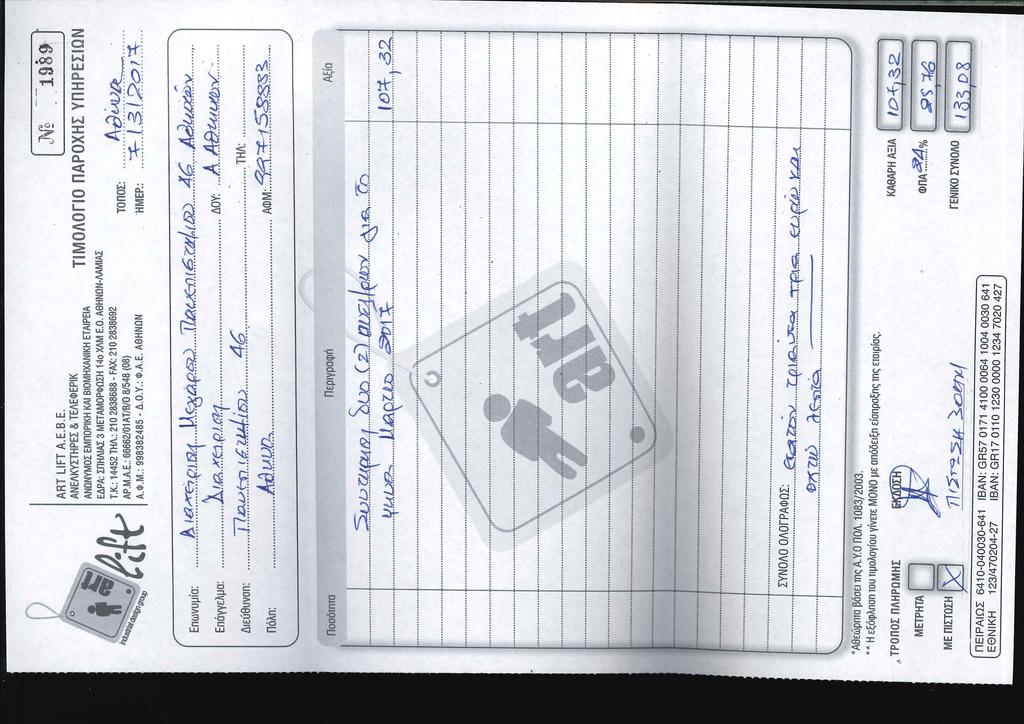 art
lift
industrial design group
ART LIFT A.E.B.E.
ΑΝΕΛΚΥΣΤΗΡΕΣ & ΤΕΛΕΦΕΡΙΚ
ΑΝΩΝΥΜΟΣ ΕΜΠΟΡΙΚΗ ΚΑΙ ΒΙΟΜΗΧΑΝΙΚΗ ΕΤΑΙΡΕΙΑ
ΕΔΡΑ: ΣΠΗΛΙΑΣ 3 ΜΕΤΑΜΟΡΦΩΣΗ 14ο ΧΛΜ Ε.Ο. ΑΘΗΝΩΝ-ΛΑΜΙΑΣ
Τ.Κ.: 14452 ΤΗΛ: 210 2838688 - FAX: 210 2838692
ΑΡ.Μ.Α.Ε.: 66662/01ΑΤ/Β/Ο 8/548 (08)
Α.Φ.Μ.: 998382485 - Δ.Ο.Υ.: Φ.Α.Ε. ΑΘΗΝΩΝ
№ 1989
ΤΙΜΟΛΟΓΙΟ ΠΑΡΟΧΗΣ ΥΠΗΡΕΣΙΩΝ
ΤΟΠΟΣ: Αθήνα
ΗΜΕΡ.: 7/3/2017
Επωνυμία: Διαχείριση Μεγάρου Πανεπιστημίου 46 Αθηνών
Επάγγελμα: Διαχείριση ΔΟΥ: Α Αθηνών
Διεύθυνση: Πανεπιστημίου 46 ΤΗΛ:
Πόλη: Αθήνα ΑΦΜ: 997158883
Ποσότητα Περιγραφή Αξία
Συντήρηση δυο (2) ανελ/ρων για το
μήνα Μάρτιο 2017 107,32
art
ΣΥΝΟΛΟ ΟΛΟΓΡΑΦΩΣ: εκατόν τριάντα τρία ευρώ και
οκτώ λεπτά
*Αθεώρητο βάσει της Α.Υ.Ο ΠΟΛ. 1083/2003.
** Η εξόφληση του τιμολογίου γίνετε ΜΟΝΟ με απόδειξη είσπραξης της εταιρίας.
ΤΡΟΠΟΣ ΠΛΗΡΩΜΗΣ ΕΚΔΟΣΗ
ΜΕΤΡΗΤΑ
ΜΕ ΠΙΣΤΩΣΗ X ΠΙΣΤΩΣΗ 30ΗΜ
ΚΑΘΑΡΗ ΑΞΙΑ 107,32
ΦΠΑ 24 % 25,76
ΓΕΝΙΚΟ ΣΥΝΟΛΟ 133,08
ΠΕΙΡΑΙΩΣ 6410-040030-641 IBAN: GR57 0171 4100 0064 1004 0030 641
ΕΘΝΙΚΗ 123/470204-27 IBAN: GR17 0110 1230 0000 1234 7020 427